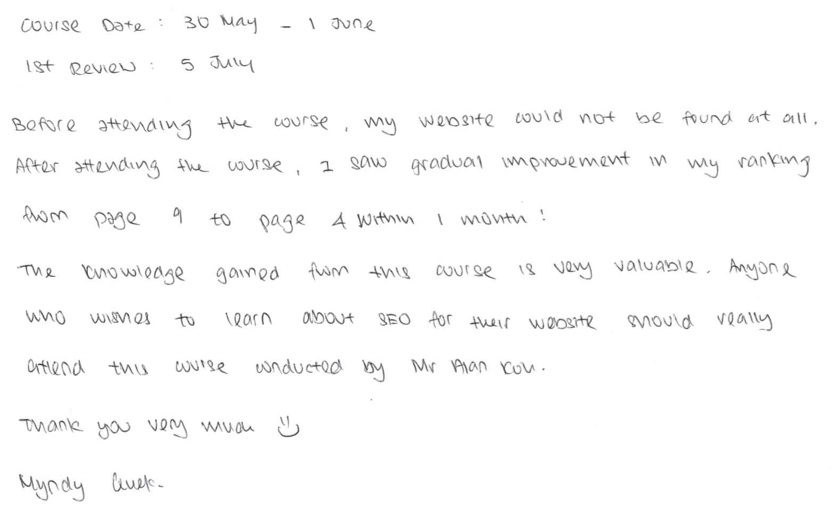 Course Date : 30 May - 1 June
1st Review : 5 July
Before attending the course, my website could not be found at all.
After attending the course, I saw gradual improvement in my ranking
from page 9 to page 4 within 1 month!
The knowledge gained from this course is very valuable. Anyone
who wishes to learn about SEO for their website should really
attend this course conducted by Mr Alan Koh.
Thank you very much
Myndy Quek.